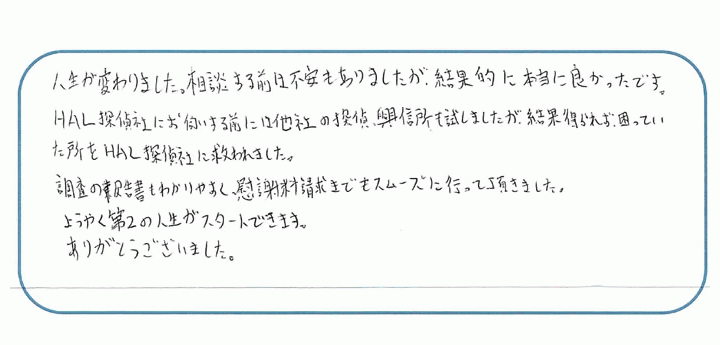 人生が変わりました。相談する前は不安もありましたが、結果的に本当に良かったです。
HAL探偵社にお伺いする前には他社の探偵、興信所も試しましたが、結果得られず、困ってい
た所をHAL探偵社に救われました。
調査の報告書もわかりやすく、慰謝料請求までもスムーズに行って頂きました。
ようやく第2の人生がスタートできます。
ありがとうございました。